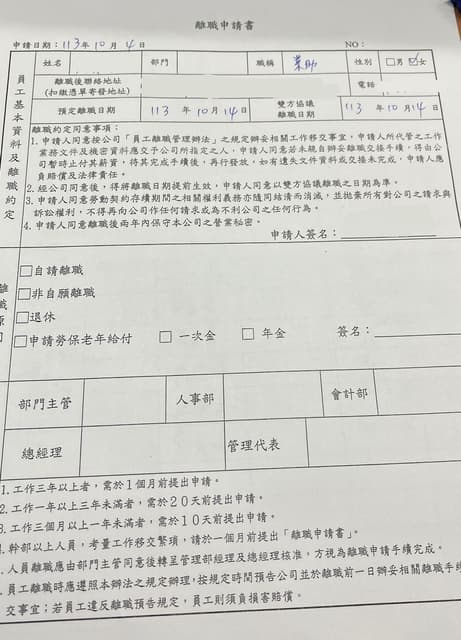 離職申請書
申請日期：113年10月4日 NO：
姓名 部門 職稱 業助 性別 □男 ☑女
離職後聯絡地址
(扣繳憑單寄發地址) 電話
預定離職日期 113年10月14日 雙方協議離職日期 113年10月14日
員工基本資料及離職約定
離職約定同意事項：
1.申請人同意按公司「員工離職管理辦法」之規定辦妥相關工作移交事宜，申請人所代管之工作
業務文件及機密資料應交予公司所指定之人，申請人若未親自辦妥離職交接手續，得由公
司暫時止付其薪資，待其完成手續後，再行發放，如有遺失文件資料或交接未完成，申請人應
負賠償及法律責任。
2.經公司同意後，得將離職日期提前生效，申請人同意以雙方協議離職之日期為準。
3.申請人同意勞動契約存續期間之相關權利義務亦隨同結清而消滅，並拋棄所有對公司之請求與
訴訟權利，不得再向公司作任何請求或為不利公司之任何行為。
4.申請人同意離職後兩年內保守本公司之營業秘密。
申請人簽名：
離職原因
□自請離職
□非自願離職
□退休
□申請勞保老年給付 □ 一次金 □ 年金 簽名：
部門主管 人事部 會計部
總經理 管理代表
1.工作三年以上者，需於1個月前提出申請。
2.工作一年以上三年未滿者，需於20天前提出申請。
3.工作三個月以上一年未滿者，需於10天前提出申請。
4.幹部以上人員，考量工作移交繁瑣，請於一個月前提出「離職申請書」。
人員離職應由部門主管同意後轉呈管理部經理及總經理核准，方視為離職申請手續完成。
員工離職時應遵照本辦法之規定辦理，按規定時間預告公司並於離職前一日辦妥相關離職手續
交事宜；若員工違反離職預告規定，員工則須負損害賠償。